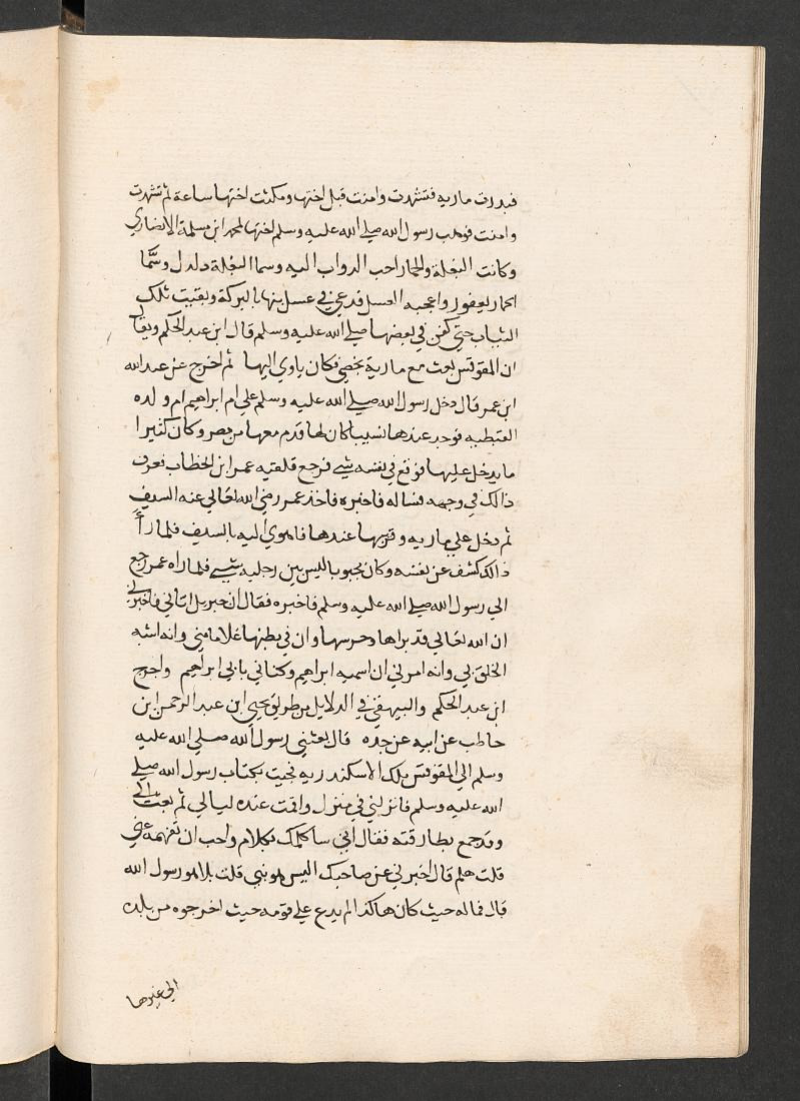 فبدرت ماريه فتشهدت وامنت قبل اختها ومكثت اختها ساعة ثم تشهدت
وامنت فوهب رسول الله صلي الله عليه وسلم اختها لمحمد ابن مسلمة الانصاري
وكانت البغلة والحمار احب الدواب اليه وسما البغلة دلدل وسما
الحمار يعفور واعجبه العسل فدعي في عسل بنها بالبركة وبقيت تلك
الثياب حتي كفن في بعضها صلي الله عليه وسلم قال ابن عبد الحكم ويقال
ان المقوقس بعث مع مارية بخصي فكان ياوي اليها ثم اخرج عن عبد الله
ابن عمر قال دخل رسول الله صلي الله عليه وسلم علي ام ابراهيم ام ولده
القبطيه فوجد عندها نسيبا كان لها قدم معها من مصر وكان كثيرا
ما يدخل عليها فوقع في نفسه شي فرجع فلقيه عمر ابن الخطاب فعرف
ذالك في وجهه فساله فاخبره فاخذ عمر رضي الله تعالي عنه السيف
ثم دخل علي ماريه وقريبها عندها فاهوي اليه بالسيف فلما رأ
ذالك كشف عن نفسه وكان مجبوبا ليس بين رجليه شي فلما راه عمر رجع
الي رسول الله صلي الله عليه وسلم فاخبره فقال ان جبريل اتاني فاخبرني
ان الله تعالي قد براها وان في بطنها غلاما مني وانه اشبه
الخلق بي وانه امرني ان اسميه ابراهيم وكناني بابي ابراهيم واخرج
ابن عبد الحكم والبيهقي في الدلايل من طريق يحيي ابن عبد الرحمن ابن
حاطب عن ابيه عن جده قال بعثني رسول الله صلي الله عليه
وسلم الي المقوقس ملك الاسكندريه فجيت بكتاب رسول الله صلي
الله عليه وسلم فانزلني في منزل واقمت عنده ليالي ثم بعث الي
وقد جمع بطارقته فقال اني ساكلمك بكلام واحب ان تفهمه عني
قلت هلم قال اخبرني عن صاحبك اليس هو نبي قلت بلا هو رسول الله
قال فما له حيث كان هاكذا لم يدع علي قومه حيث اخرجوه من بلده
الي غيرها